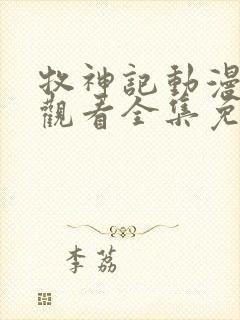 牧神記動漫
觀看全集免
李荔